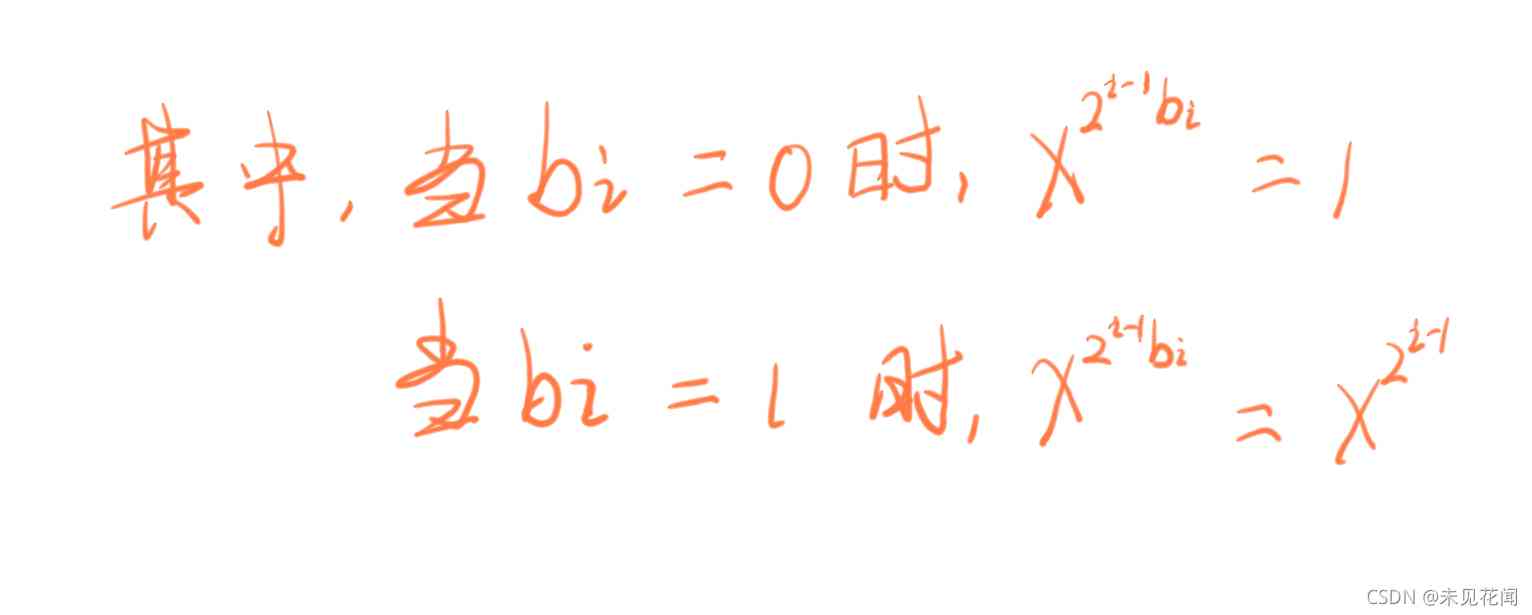 其中，当 bi = 0 时，x^{2^{i-1}bi} = 1
当 bi = 1 时，x^{2^{i-1}bi} = x^{2^{i-1}}
CSDN @未见花闻